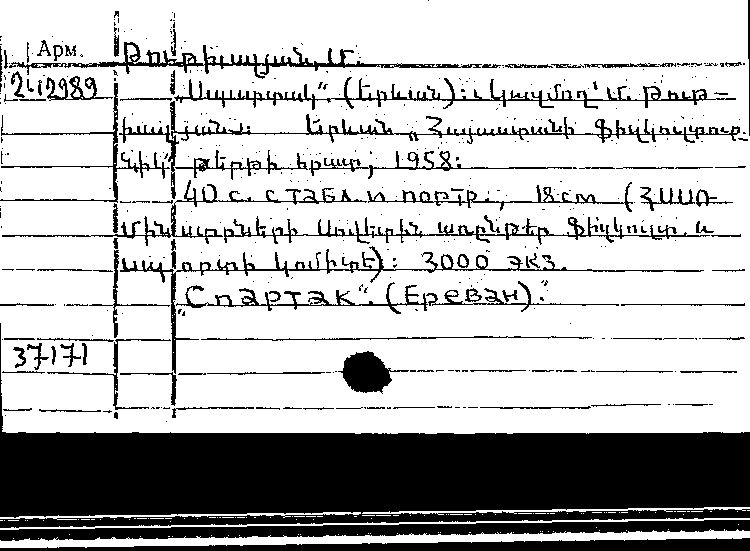 Арм.
Թութխալյան, Մ.
2-12989
„Սպարտակ“. (Երևան): Կազմող՝ Մ. Թութ-
խալյան: Երևան „Հայաստանի Ֆիզկուլտուր-
նիկ“ թերթի հրատ, 1958:
40 с. с табл и портр., 18 см (ՀՍՍՌ
Մինիստրների Սովետին առընթեր Ֆիզկուլտ. և
սպորտի կոմիտե): 3000 экз.
„Спартак“. (Ереван).
37171